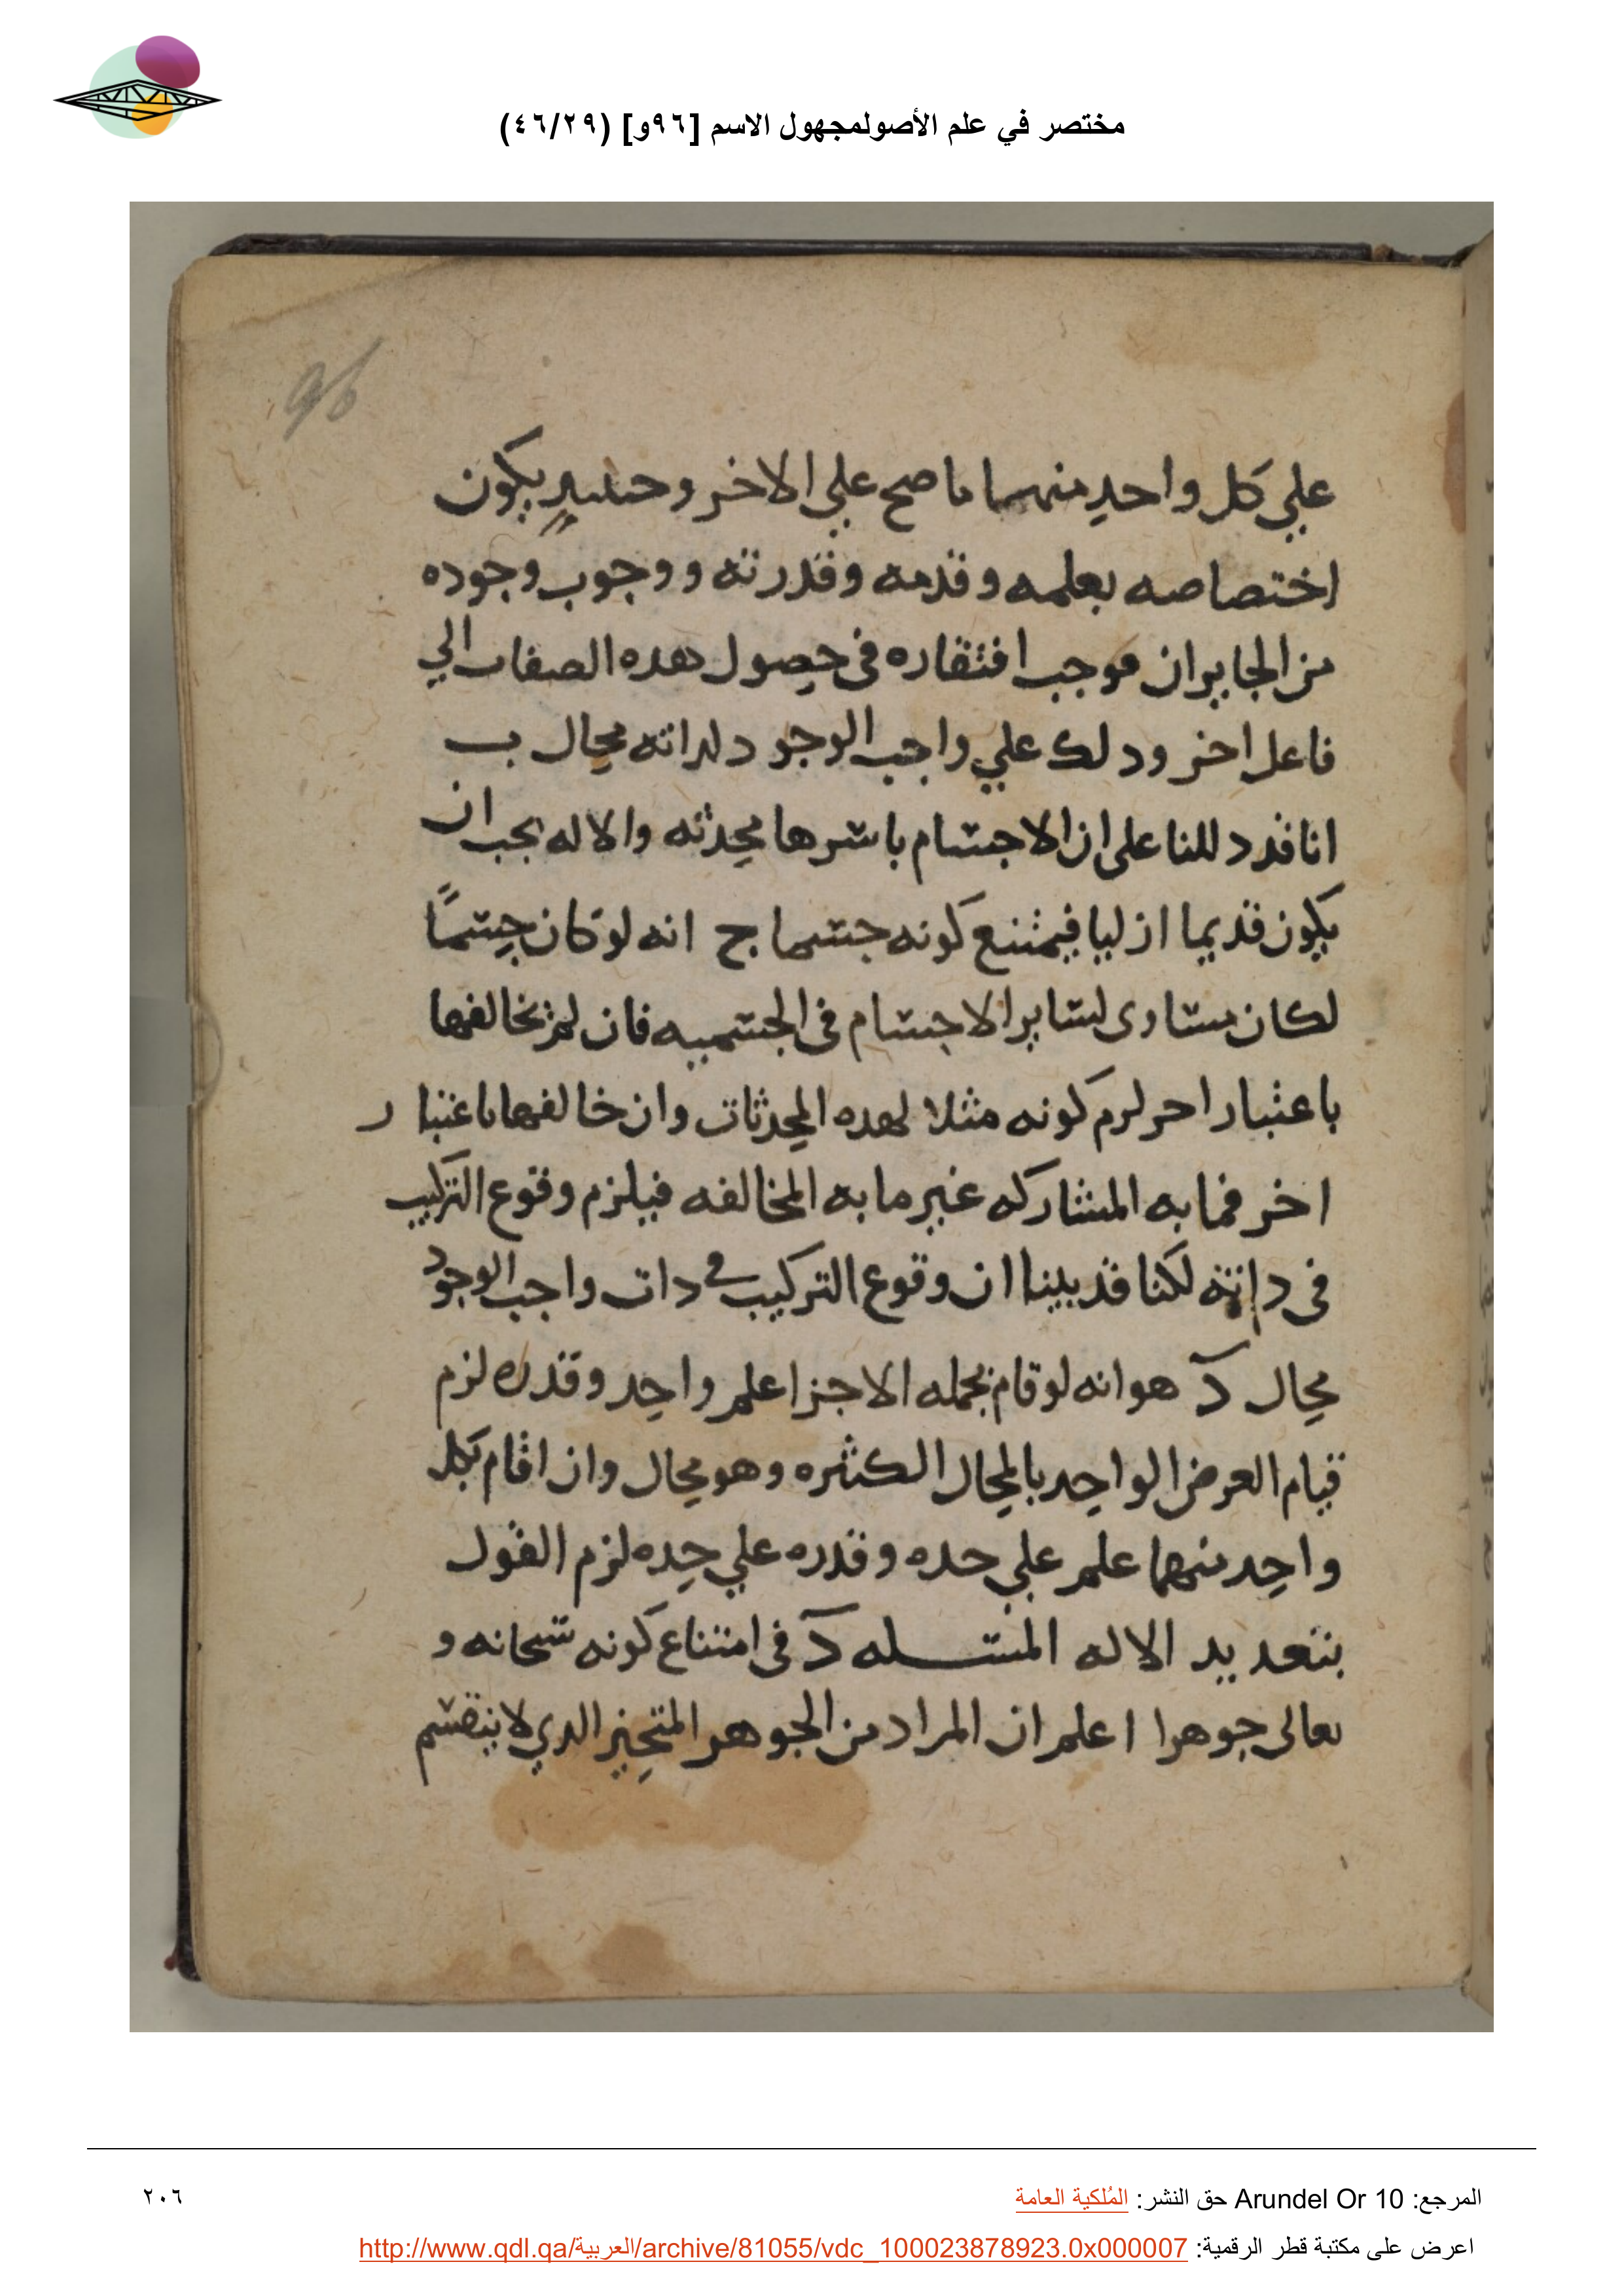 مختصر في علم الأصولمجهول الاسم [٩٦و] (٤٦/٢٩)
96
علي كل واحد منهما ما صح علي الاخر وحينيدٍ يكون
اختصاصه بعلمه وقدمه وقدرته ووجوب وجوده
من الجايزان فوجب افتقاره في حصول هده الصفات الي
فاعل اخر ودلك علي واجب الوجود لداته محال ب
انا قد دللنا على ان الاجسام باسرها محدثه والاله يجب ان
يكون قديما ازليا فيمتنع كونه جسما ج انه لو كان جسمًا
لكان مساوى لساير الاجسام في الجسميه فان لم يخالفها
باعتبار احر لزم كونه مثلا لهده المحدثات وان خالفها باعتبار
اخر فما به المشاركه غير ما به المخالفه فيلزم وقوع التركيب
في داته لكنا قد بينا ان وقوع التركيب في دات واجب الوجود
محال د هو انه لو قام بجمله الاجزا علم واحد وقدره لزم
قيام العرض الواحد بالمحال الكثره وهو محال وان اقام بكل
واحد منهما علم علي حده وقدره علي حده لزم القول
بتعديد الاله المسله د في امتناع كونه سبحانه و
تعالى جوهرا اعلم ان المراد من الجوهر المتحيز الدي لا ينقسم
المرجع: Arundel Or 10 حق النشر: المُلكية العامة
٢٠٦
اعرض على مكتبة قطر الرقمية: http://www.qdl.qa/العربية/archive/81055/vdc_100023878923.0x000007